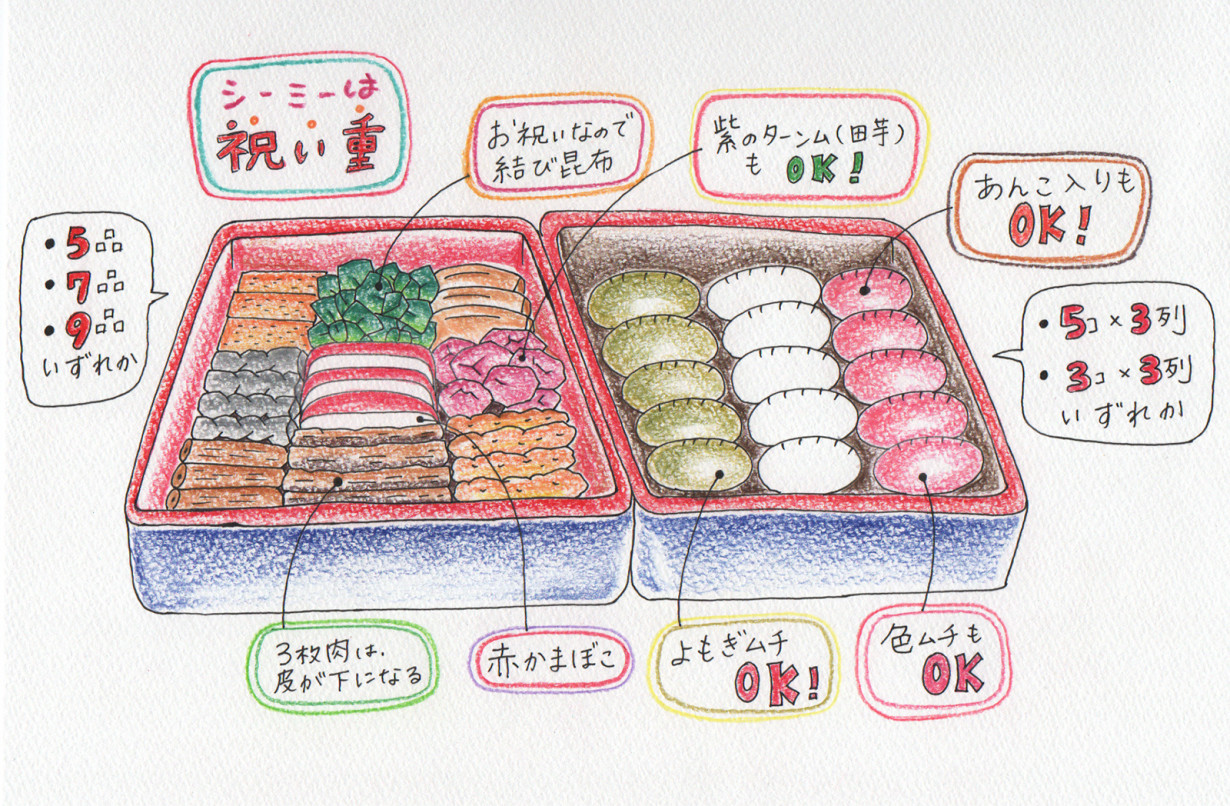 シーミーは
祝い重
お祝いなので
結び昆布
紫のターンム(田芋)
も OK!
あんこ入りも
OK!
・5品
・7品
・9品
いずれか
・5コ×3列
・3コ×3列
いずれか
3枚肉は、
皮が下になる
赤かまぼこ
よもぎムチ
OK!
色ムチも
OK